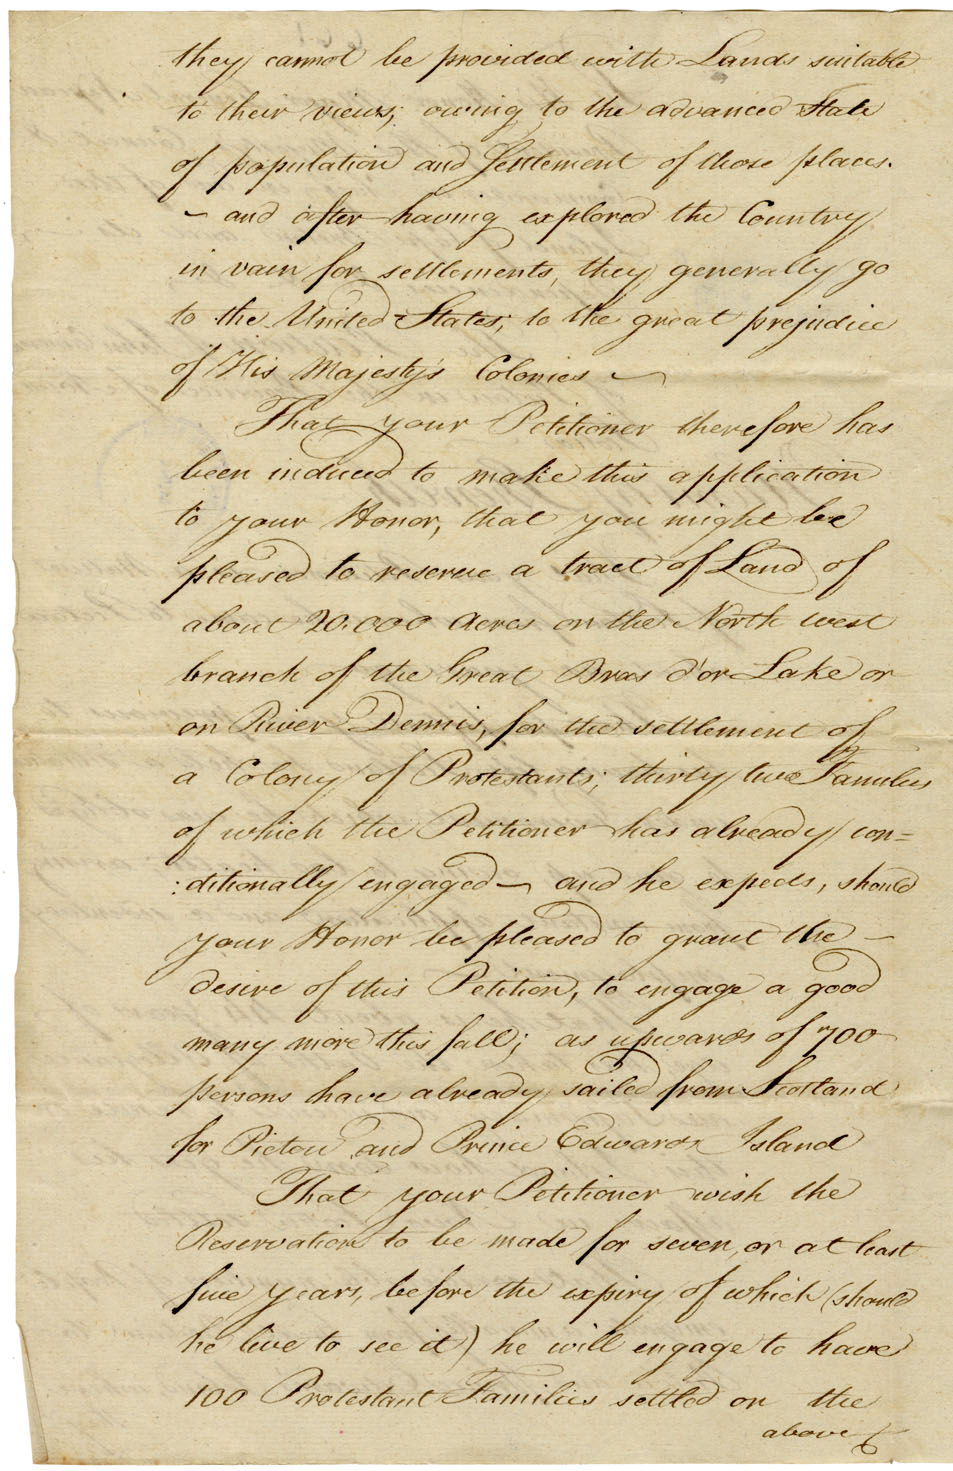 they cannot be provided with Lands suitable
to their views; owing to the advanced State
of population and Settlement of those places.
~ and after having explored the Country
in vain for settlements, they generally go
to the United States; to the great prejudice
of His Majesty's Colonies ~
That your Petitioner therefore has
been induced to make this application
to your Honor, that you might be
pleased to reserve a tract of Land of
about 20.000 Acres on the North west
branch of the Great Bras d'or Lake or
on River Dennis, for the settlement of
a Colony of Protestants; thirty two Families
of which the Petitioner has already con=
:ditionally engaged ~ and he expects, should
your Honor be pleased to grant the —
desire of this Petition, to engage a good
many more this fall; as upwards of 700
persons have already sailed from Scotland
for Pictou and Prince Edwards Island
That your Petitioner wish the
Reservation to be made for seven, or at least
five years, before the expiry of which (should
he live to see it) he will engage to have
100 Protestant Families settled on the
above